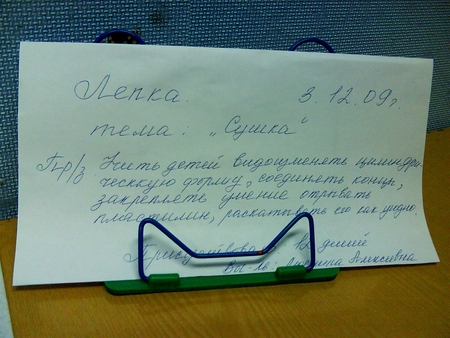 Лепка. 3.12.09г.
тема: „Сушка“
Пр/з Учить детей видоизменять цилиндри-
ческую форму, соединять концы,
закреплять умение отрывать
пластилин, раскатывать его как угодно.
Присутствовало 12 детей
Вос-ль: Алексевна